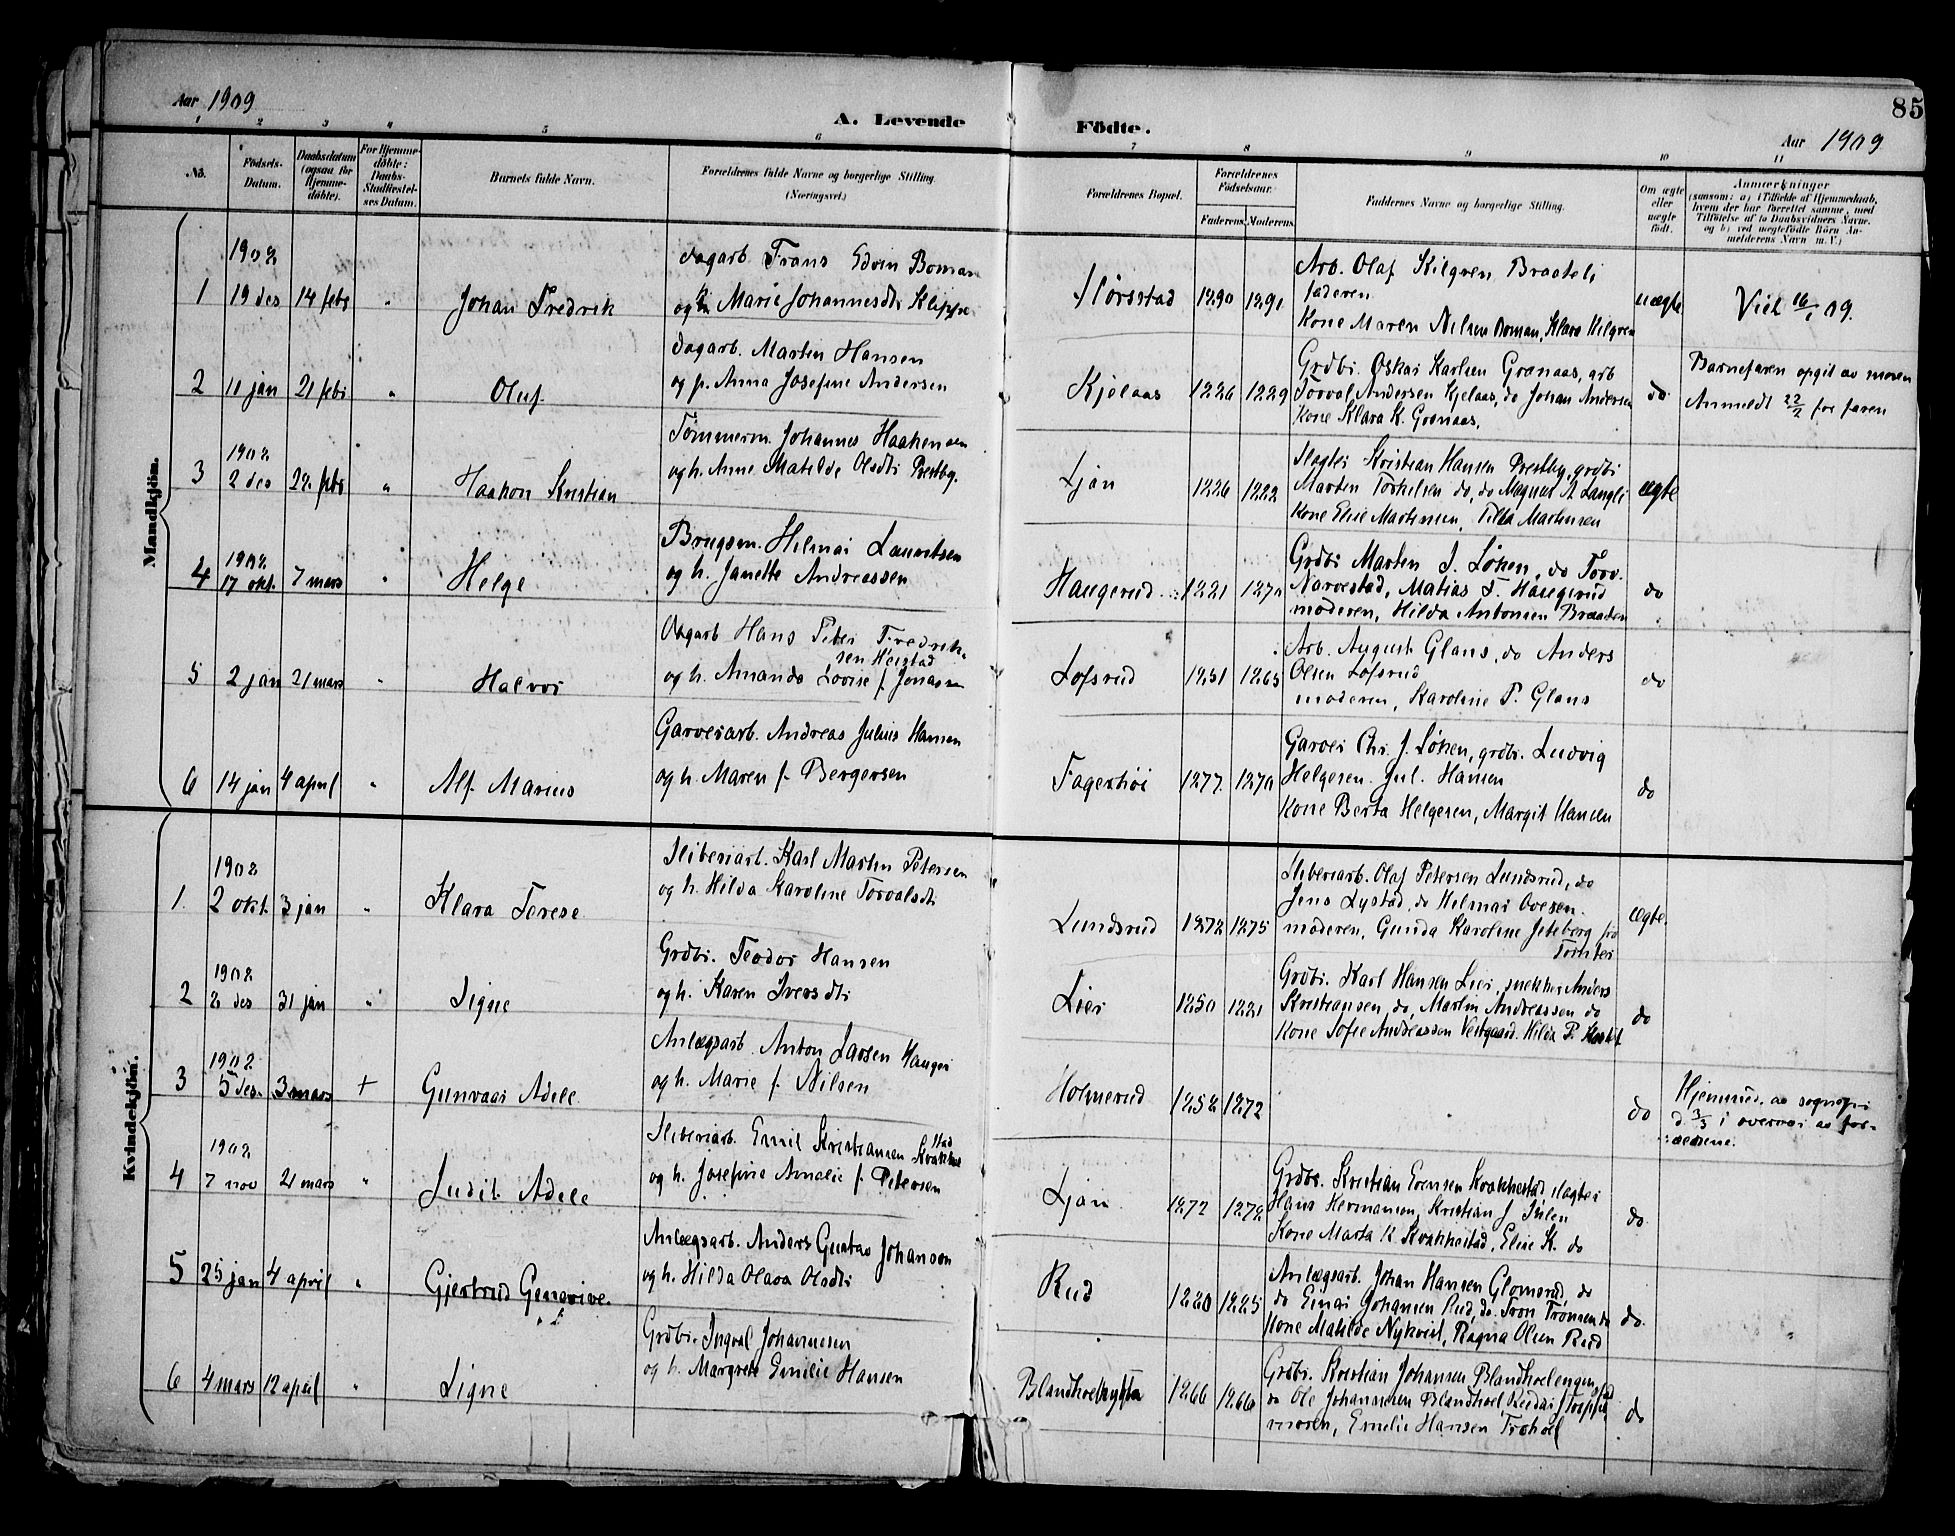 Aar 1909
A. Levende Födte.
Aar 1909
85
1 2 3 4 5 6 7 8 9 10 11
No.
Födsels-Datum.
Daabsdatum (ogsaa for Hjemmedöbte).
For Hjemmedöbte: Daabs-Stadfæstelses Datum.
Barnets fulde Navn.
Forældrenes fulde Navne og borgerlige Stilling. (Næringsvei.)
Forældrenes Bopæl.
Forældrenes Födselsaar.
Faderens. Moderens.
Faddernes Navne og borgerlige Stilling.
Om ægte eller uægte födt.
Anmærkninger
(saasom: a) i Tilfælde af Hjemmedaab, hvem der har forrettet samme, med Tilföielse af to Daabsvidners Navne. og b) ved uægtefödte Börn Anmelderens Navn m. V.)
Mandkjön.
1 1908 19 des 14 febr " Johan Fredrik
Dagarb. Frans Edvin Boman
og Marie Johannesdtr Kleppe
1890 1891
Arb. Olaf Kilgren Braateli
faderen
Kone Maren Nilsen Boman, Klara Kilgren
uægte
Viel 16/1 09.
2 10 jan 21 febr " Oluf
Dagarb. Martin Hansen
og p. Anna Josefine Andersen
Kjelaas 1886 1889
Grdbr. Oskar Karlsen Grønaas, arb
Torval Andersen Kjelaas, do Johan Andersen
Kone Klara K. Grønaas.
do
Barnefaren opgit av moren
Anmeldt 22/2 for faren
3 1908 2 des 28 febr " Haakon Kristian
Tømmerm. Johannes Haakensen
og h. Anne Matilde Olsdtr Prestby.
Ljan 1886 1882
Slagter Kristian Hansen Prestby, grdbr
Martin Torkelsen do, do Magnus A Langli
Kone Elise Martinsen, Tilla Martinsen
ægte
4 1908 17 okt. 7 mars " Helge
Brugsm. Hilmar Lauritsen
og h. Janette Andreassen
Haugerud 1881 1870
Grdbr Martin J. Løken, do Torv.
Narvestad, Matias T. Haugerud
moderen, Hilda Antonsen Braaten
do
5 2 jan 21 mars " Halvor
Dagarb Hans Peter Fredriksen Heistad
og h. Amanda Lovise f. Jonassen
Lofsrud 1851 1865
Arb. August Glans, do Anders
Olsen Lofsrud
moderen, Karoline P. Glans
do
6 14 jan 4 april " Alf Marius
Garveriarb. Andreas Julius Hansen
og h. Maren f. Bergersen
Fagertjøi 1877 1870
Garver Chr. J. Løken, grdbr. Ludvig
Helgesen. Jul. Hansen
Kone Berta Helgesen, Margit Hansen
do
Kvindekjön.
1. 1908 2 okt. 3 jan " Klara Terese
Sliberiarb. Karl Martin Petersen
og h. Hilda Karoline Torvalsdtr
Lundsrud 1872 1875
Sliberiarb. Olaf Petersen Lundsrud, do
Jens Lystad, do Hilmar Ovesen.
moderen, Gunda Karoline Jeteberg fra
Tomter
ægte.
2 1908 8 des 31 jan " Signe
Grdbr. Teodor Hansen
og h. Karen Iversdtr
Lier 1850 1881
Grdbr. Karl Hansen Lier, snekker Anders
Kristiansen, do, Martin Andreassen do
Kone Sofie Andreassen Vestgaard, Hilda P.
do
3 1908 5 des. 3 mars + Gunvaar Adele
Anlægsarb. Anton Larsen Hauger
og h. Marie f. Nilsen
Holmerud 1858 1872
do
Hjemmed. av sognepr
d 3/3 i overvær av forældrene.
4 1908 7 nov 21 mars " Judit Adele
Sliberiarb. Emil Kristiansen Krokkestad
og h. Josefine Amalie f. Petersen
Ljan 1872 1878
Grdbr. Kristian Evensen Krokkestad, slagter
Hans Hermansen, Kristian J Julen
Kone Marta K. Krokkestad, Elise K. do
do
5 25 jan 4 april " Gjertrud Genevive.
Anlægsarb. Anders Gustav Johansen
og h. Hilda Olava Olsdtr
Rud 1880 1885
Anlægsarb. Johan Hansen Glomsrud, do
do Einar Johansen Rud, do. Tron Trønsen do
Kone Matilde Nykvist, Ragna Olsen Rud
do
6 4 mars 12 april " Signe
Grdbr. Ingval Johannesen
og h. Margrete Emilie Hansen
Blandhoelhytta 1866 1866
Grdbr. Kristian Johansen Blandhoelengen,
do Ole Johannesen Blandhoel Reidar
moren, Emilie Hansen Trohoel
do